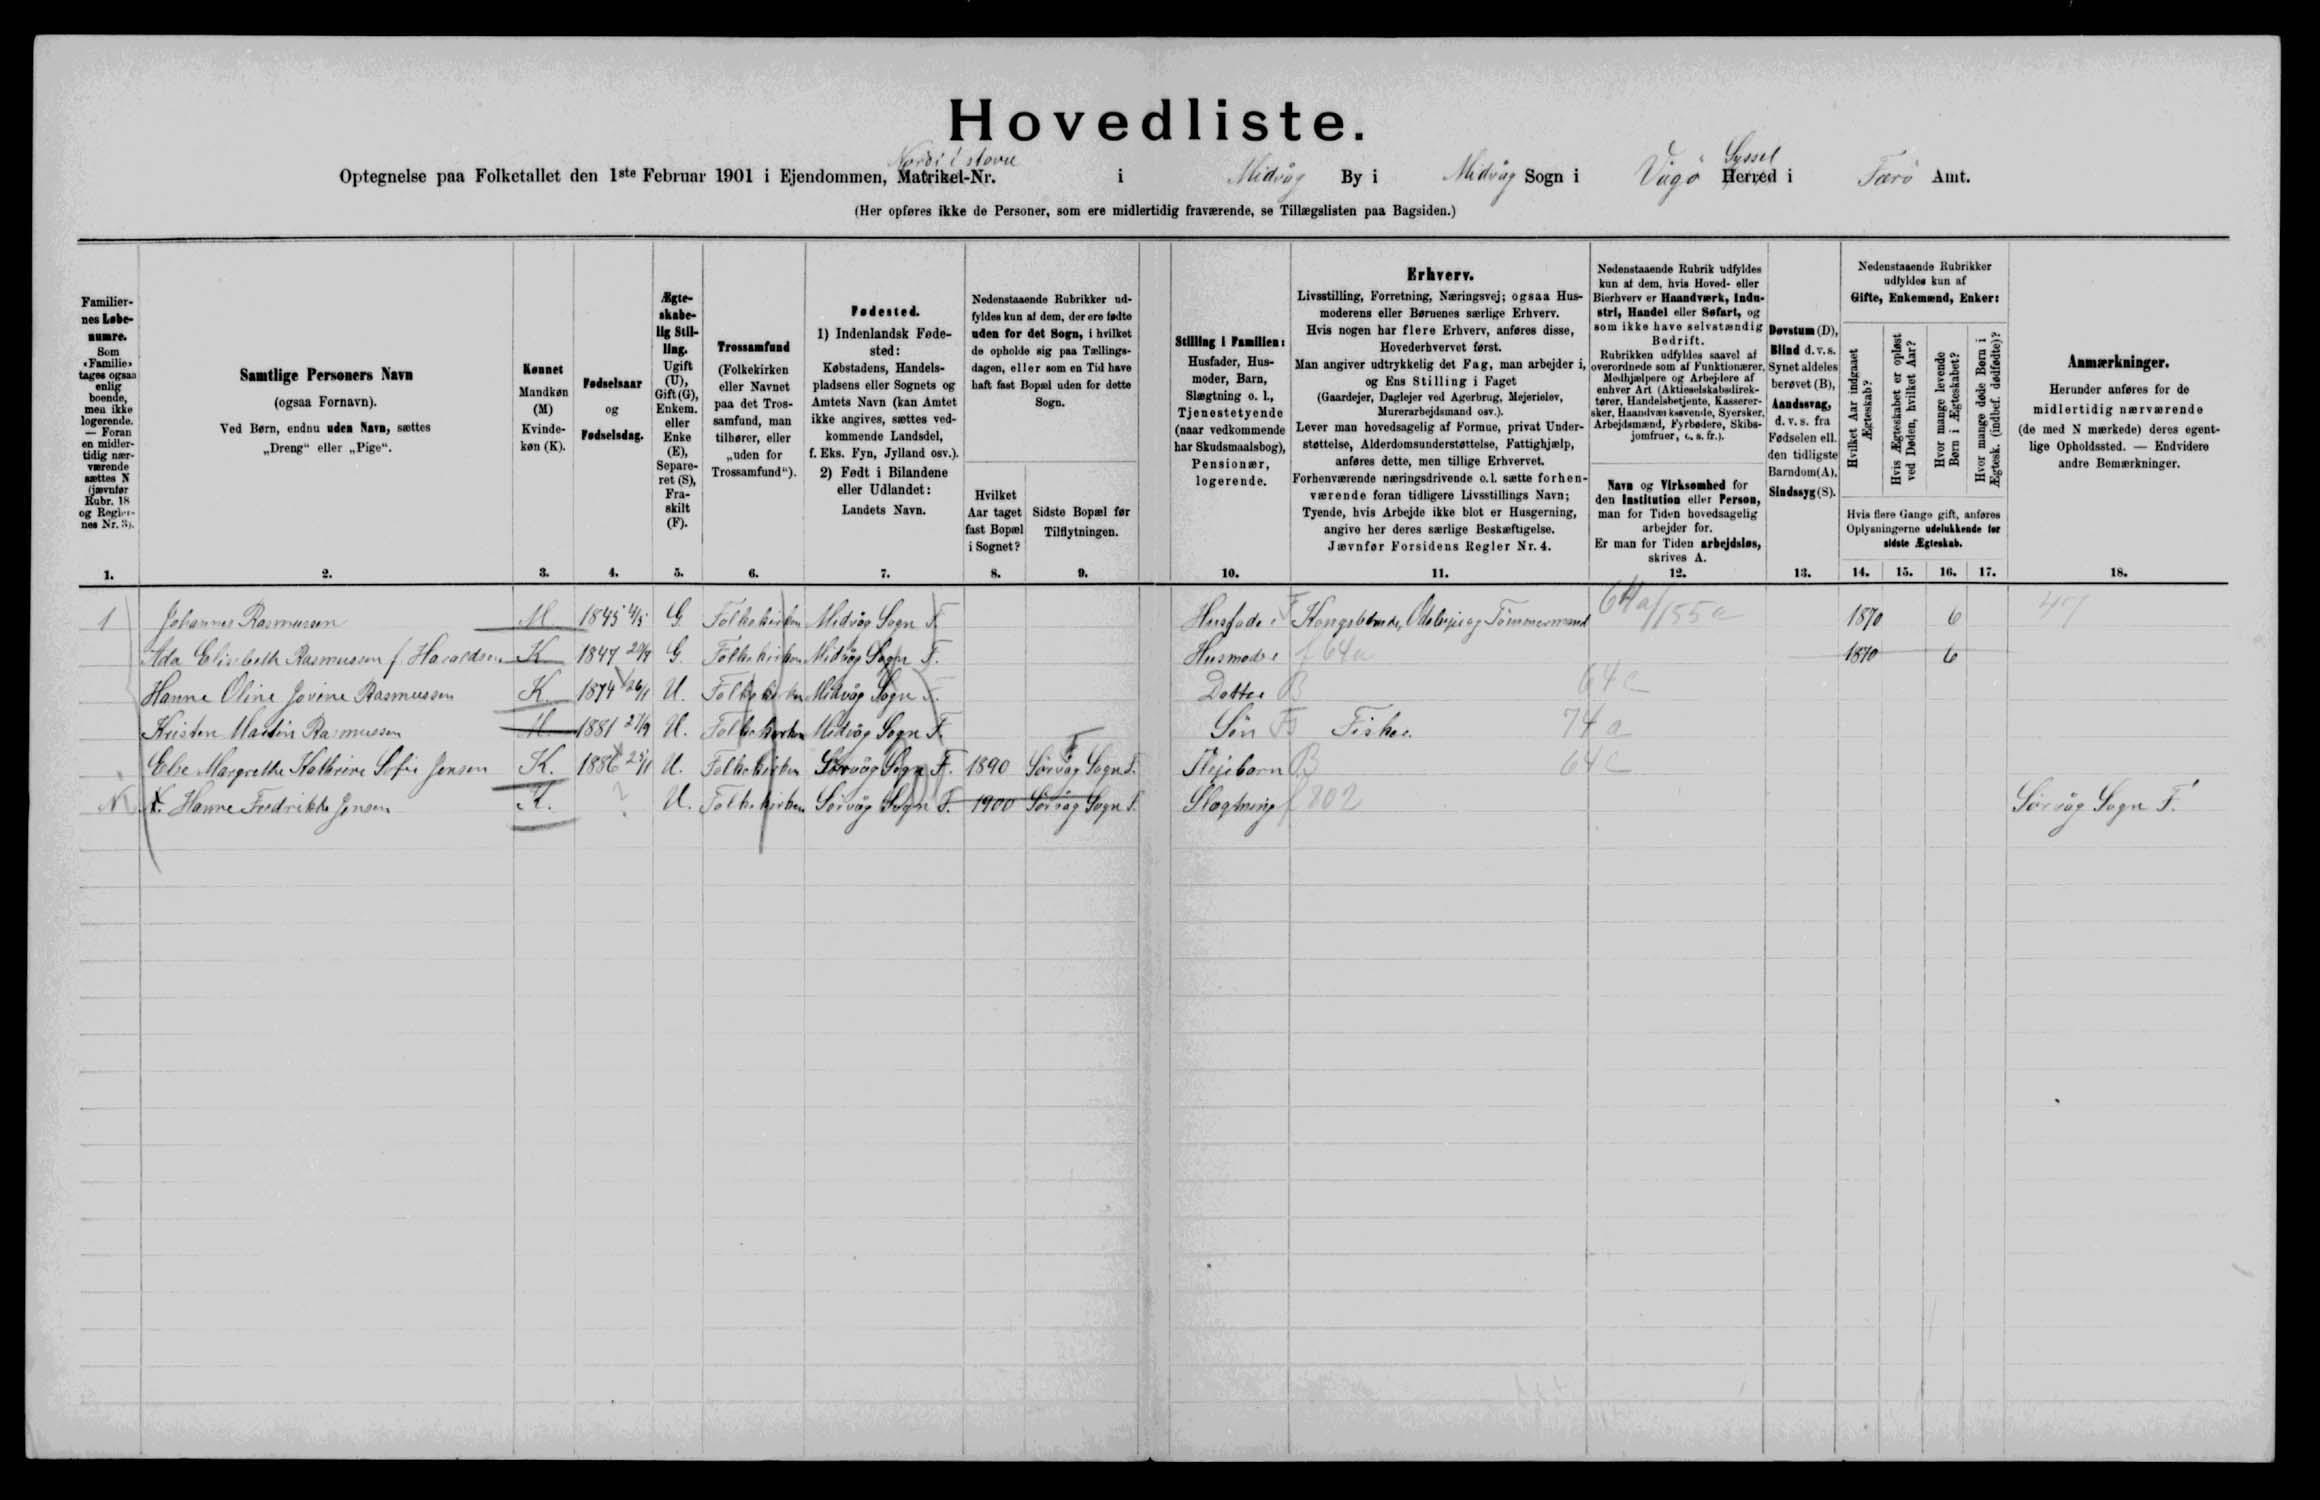 Hovedliste.
Nordi i stovu
Syssel
Optegnelse paa Folketallet den 1ste Februar 1901 i Ejendommen, Matrikel-Nr. i Midvåg By i Midvåg Sogn i Vågö Herred i Færö Amt.
(Her opføres ikke de Personer, som ere midlertidig fraværende, se Tillægslisten paa Bagsiden.)
Familier-
nes Løbe-
numre.
Som
«Familie»
tages ogsaa
enlig
boende,
men ikke
logerende.
— Foran
en midler-
tidig nær-
værende
sættes N
(jævnfør
Rubr. 18
og Regler-
nes Nr. 3).
1.
Samtlige Personers Navn
(ogsaa Fornavn).
Ved Børn, endnu uden Navn, sættes
„Dreng“ eller „Pige“.
2.
Kønnet
Mandkøn
(M)
Kvinde-
køn (K).
3.
Fødselsaar
og
Fødselsdag.
4.
Ægte-
skabe-
lig Stil-
ling.
Ugift
(U),
Gift (G),
Enkem.
eller
Enke
(E),
Separe-
ret (S),
Fra-
skilt
(F).
5.
Trossamfund
(Folkekirken
eller Navnet
paa det Tros-
samfund, man
tilhører, eller
„uden for
Trossamfund“).
6.
Fødested.
1) IndenlandskFøde-
sted:
Købstadens, Handels-
pladsens eller Sognets og
Amtets Navn (kan Amtet
ikke angives, sættes ved-
kommende Landsdel,
f. Eks. Fyn, Jylland osv.).
2) Født i Bilandene
eller Udlandet:
Landets Navn.
7.
Nedenstaaende Rubrikker ud-
fyldes kun af dem, der ere fødte
uden for det Sogn, i hvilket
de opholde sig paa Tællings-
dagen, eller som en Tid have
haft fast Bopæl uden for dette
Sogn.
Hvilket
Aar taget
fast Bopæl
i Sognet?
8.
Sidste Bopæl før
Tilflytningen.
9.
Stilling i Familien:
Husfader, Hus-
moder, Barn,
Slægtning o. l.,
Tjenestetyende
(naar vedkommende
har Skudsmaalsbog),
Pensionær,
logerende.
10.
Erhverv.
Livsstilling, Forretning, Næringsvej; ogsaa Hus-
moderens eller Børnenes særlige Erhverv.
Hvis nogen har flere Erhverv, anføres disse,
Hovederhvervet først.
Man angiver udtrykkelig det Fag, man arbejder i,
og Ens Stilling i Faget
(Gaardejer, Daglejer ved Agerbrug, Mejerielev,
Murerarbejdsmand osv.).
Lever man hovedsagelig af Formue, privat Under-
støttelse, Alderdomsunderstøttelse, Fattighjælp,
anføres dette, men tillige Erhvervet.
Forhenværende næringsdrivende o. l. sætte forhen-
værende foran tidligere Livsstillings Navn;
Tyende, hvis Arbejde ikke blot er Husgerning,
angive her deres særlige Beskæftigelse.
Jævnfør Forsidens Regler Nr. 4.
11.
Nedenstaaende Rubrik udfyldes
kun af dem, hvis Hoved- eller
Bierhverv er Haandværk, Indu-
stri, Handel eller Søfart, og
som ikke have selvstændig
Bedrift.
Rubrikken udfyldes saavel af
overordnede som af Funktionærer,
Medhjælpere og Arbejdere af
enhver Art (Aktieselskabsdirek-
tører, Handelsbetjente, Kasserer-
sker, Haandværksvende, Syersker,
Arbejdsmænd, Fyrbødere, Skibs-
jomfruer, o. s. fr.).
Navn og Virksomhed for
den Institution eller Person,
man for Tiden hovedsagelig
arbejder for.
Er man for Tiden arbejdsløs,
skrives A.
12.
Døvstum (D),
Blind d. v. s.
Synet aldeles
berøvet (B),
Aandssvag,
d. v. s. fra
Fødselen ell.
den tidligste
Barndom (A),
Sindssyg (S).
13.
Nedenstaaende Rubrikker
udfyldes kun af
Gifte, Enkemænd, Enker:
Hvilket Aar indgaaet
Ægteskab?
Hvis Ægteskabet er opløst
ved Døden, hvilket Aar?
Hvor mange levende
Børn i Ægteskabet?
Hvor mange døde Børn i
Ægtesk. (indbef. dødfødte)?
Hvis flere Gange gift, anføres
Oplysningerne udelukkende for
sidste Ægteskab.
14. 15. 16. 17.
Anmærkninger.
Herunder anføres for de
midlertidig nærværende
(de med N mærkede) deres egent-
lige Opholdssted. — Endvidere
andre Bemærkninger.
18.
1 Johannes Rasmussen M. 1845 4/5 G. Folkekirken Midvåg Sogn F. Husfader F Kongsbonde, Odelsejer og Tömmermand 64a/155a 1870 6 47
Ada Elisbeth Rasmussen f. Haraldsen K 1847 20/9 G. Folkekirken Midvåg Sogn F. Husmoder f 64a 1870 6
Hanne Oline Jovine Rasmussen K. 1874 26/1 U. Folkekirken Midvåg Sogn F. Datter B 64c
Kristen Martin Rasmussen M. 1881 27/9 U. Folkekirken Midvåg Sogn F. Sön F Fisker 74a
Else Margrethe Kathrine Sofie Jensen K. 1886 25/11 U. Folkekirken Sörvåg Sogn F. 1890 Sörvåg Sogn F. Plejebarn B 64c
N N. Hanne Fredrikke Jensen K. ? U. Folkekirken Sörvåg Sogn F. 1900 Sörvåg Sogn F. Slægtning f 802 Sörvåg Sogn F.